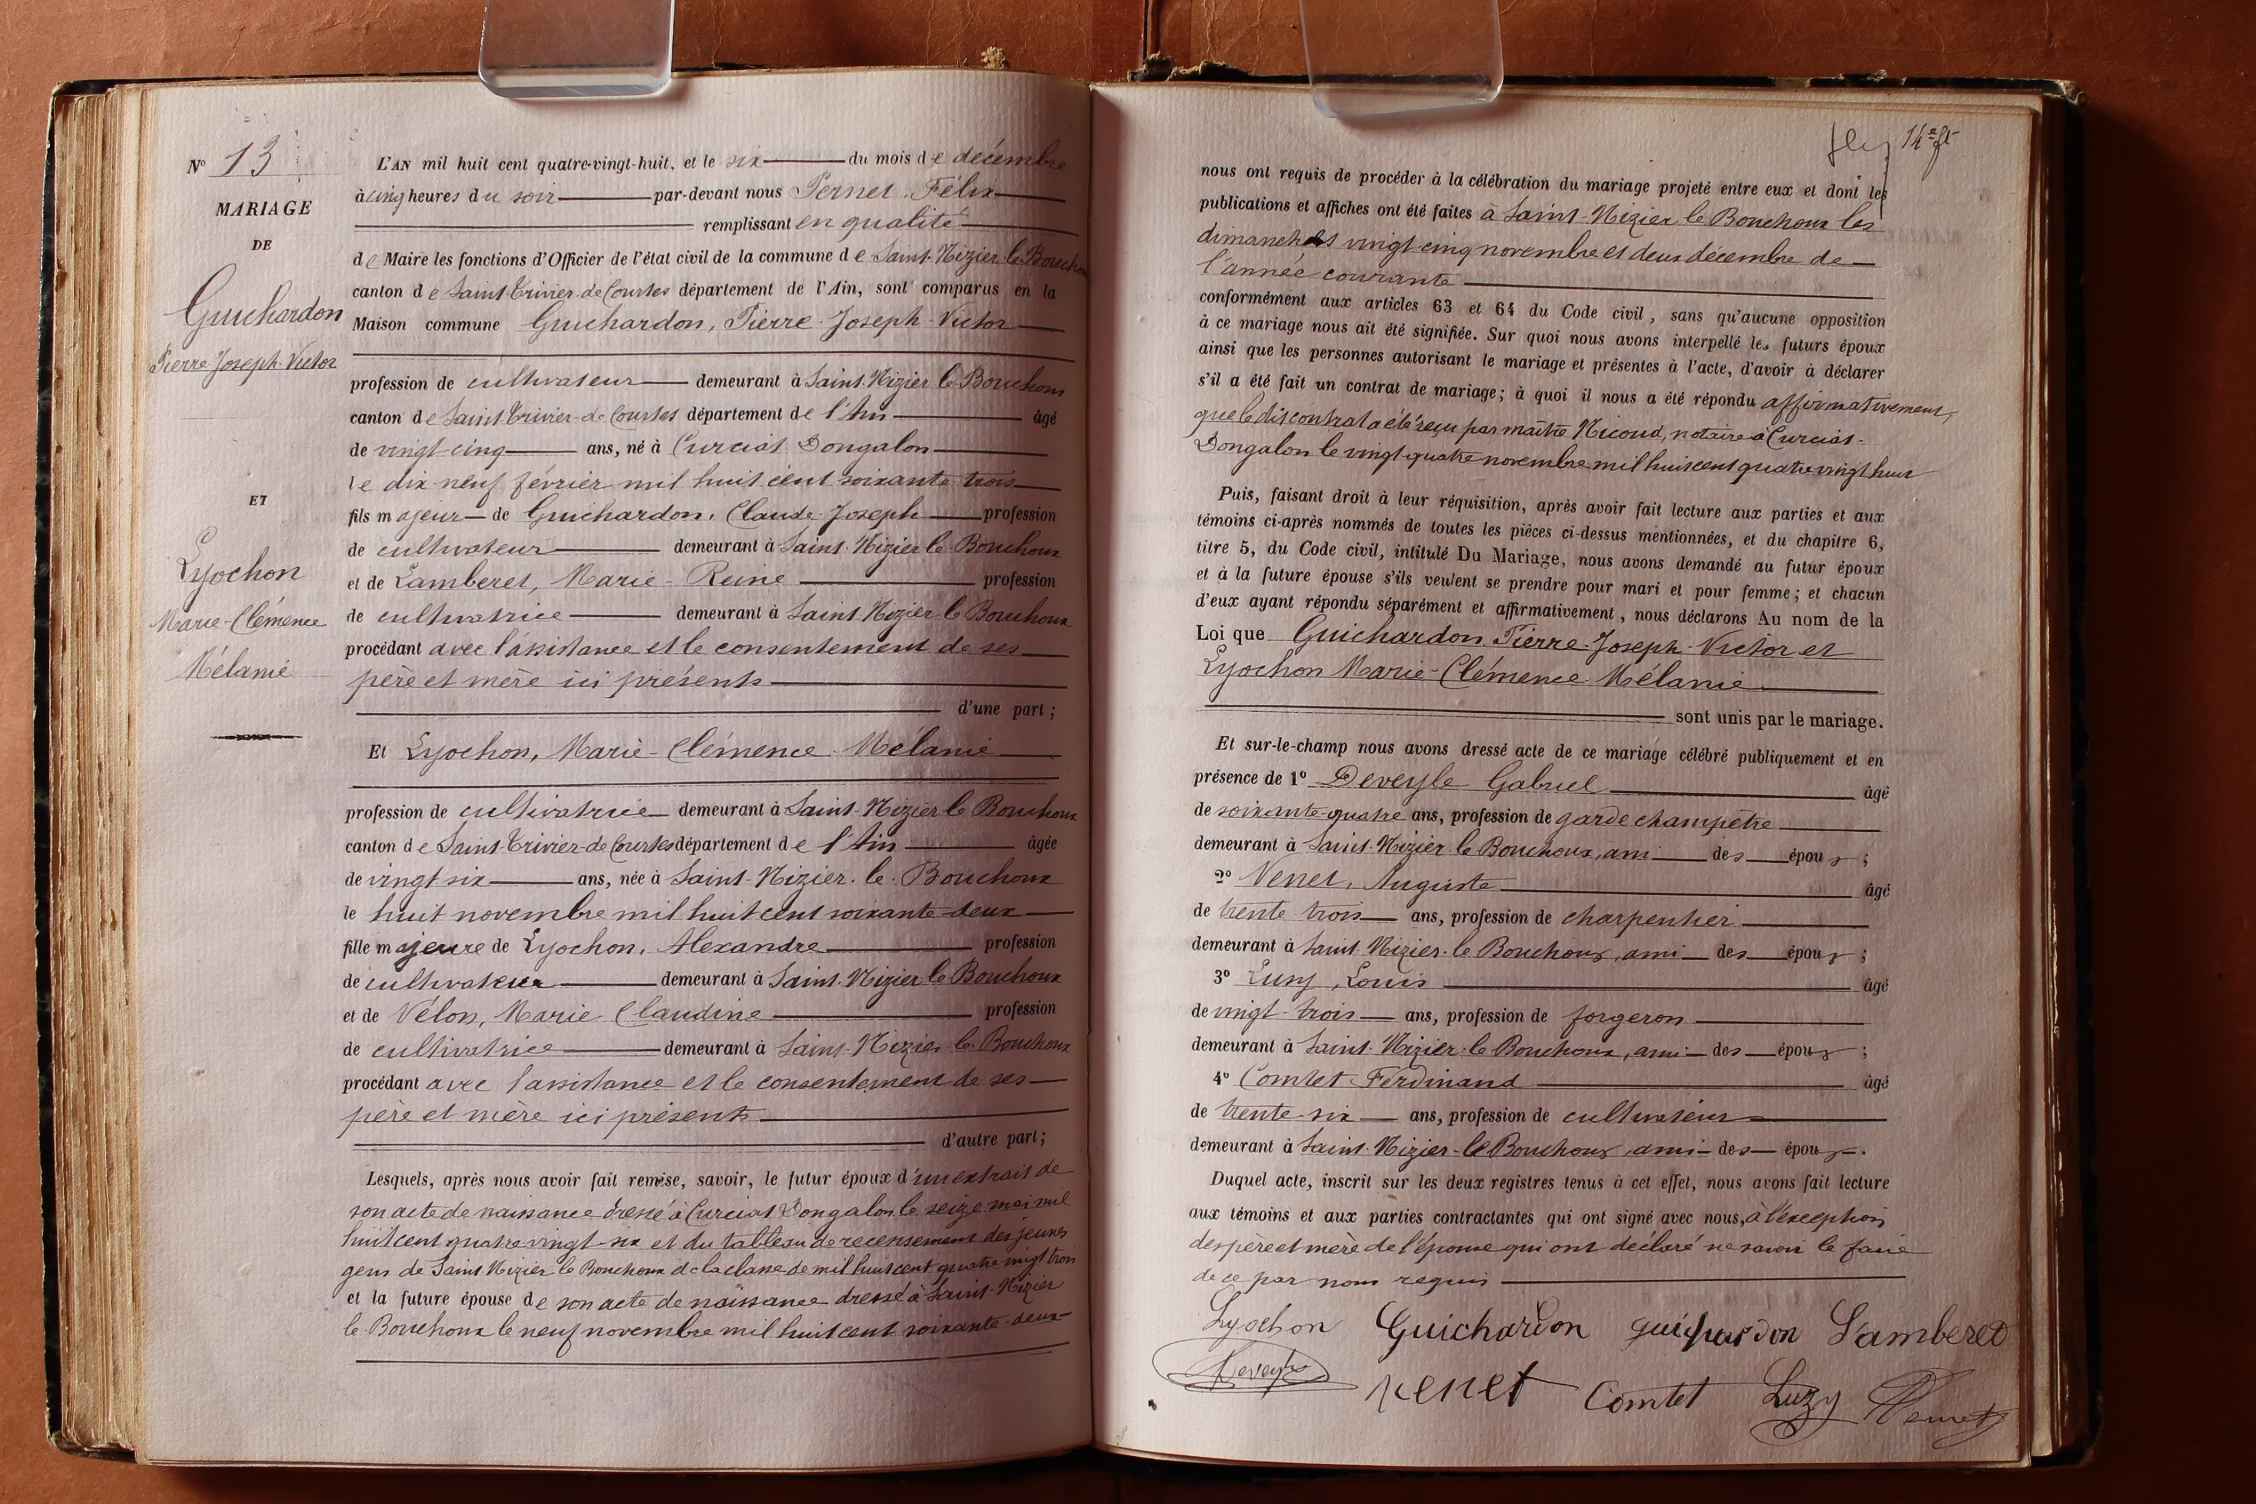 N° 13
MARIAGE
DE
Guichardon
Pierre Joseph Victor
ET
Lyochon
Marie-Clémence
Mélanie
L'AN mil huit cent quatre-vingt-huit, et le six du mois de décembre
à cinq heures du soir par-devant nous Pernet Félix
remplissant en qualité
de Maire les fonctions d'Officier de l'état civil de la commune de Saint-Nizier le Bouchoux
canton de Saint-Trivier-de-Courtes département de l'Ain, sont comparus en la
Maison commune Guichardon, Pierre-Joseph-Victor
profession de cultivateur demeurant à Saint-Nizier le Bouchoux
canton de Saint-Trivier-de-Courtes département de l'Ain âgé
de vingt-cinq ans, né à Curciat Dongalon
le dix-neuf février mil huit cent soixante-trois
fils majeur de Guichardon, Claude Joseph profession
de cultivateur demeurant à Saint-Nizier le Bouchoux
et de Lamberet, Marie-Reine profession
de cultivatrice demeurant à Saint-Nizier le Bouchoux
procédant avec l'assistance et le consentement de ses
père et mère ici présents
d'une part;
Et Lyochon, Marie-Clémence Mélanie
profession de cultivatrice demeurant à Saint-Nizier le Bouchoux
canton de Saint-Trivier-de-Courtes département de l'Ain âgée
de vingt six ans, née à Saint-Nizier-le-Bouchoux
le huit novembre mil huit cent soixante-deux
fille majeure de Lyochon, Alexandre profession
de cultivateur demeurant à Saint-Nizier le Bouchoux
et de Vélon, Marie Claudine profession
de cultivatrice demeurant à Saint-Nizier le Bouchoux
procédant avec l'assistance et le consentement de ses
père et mère ici présents
d'autre part;
Lesquels, après nous avoir fait remise, savoir, le futur époux d'un extrait de
son acte de naissance dressé à Curciat Dongalon le seize mai mil
huit cent quatre vingt-six et du tableau de recensement des jeunes
gens de Saint Nizier le Bouchoux de la classe de mil huit cent quatre vingt trois
et la future épouse de son acte de naissance dressé à Saint-Nizier
le Bouchoux le neuf novembre mil huit cent soixante-deux
14e ft
nous ont requis de procéder à la célébration du mariage projeté entre eux et dont les
publications et affiches ont été faites à Saint-Nizier le Bouchoux les
dimanches vingt-cinq novembre et deux décembre de
l'année courante
conformément aux articles 63 et 64 du Code civil, sans qu'aucune opposition
à ce mariage nous ait été signifiée. Sur quoi nous avons interpellé les futurs époux
ainsi que les personnes autorisant le mariage et présentes à l'acte, d'avoir à déclarer
s'il a été fait un contrat de mariage; à quoi il nous a été répondu affirmativement,
que le dit contrat a été reçu par maître Nicoud, notaire à Curciat-
Dongalon le vingt-quatre novembre mil huit cent quatre vingt huit
Puis, faisant droit à leur réquisition, après avoir fait lecture aux parties et aux
témoins ci-après nommés de toutes les pièces ci-dessus mentionnées, et du chapitre 6,
titre 5, du Code civil, intitulé Du Mariage, nous avons demandé au futur époux
et à la future épouse s'ils veulent se prendre pour mari et pour femme; et chacun
d'eux ayant répondu séparément et affirmativement, nous déclarons Au nom de la
Loi que Guichardon Pierre-Joseph-Victor et
Lyochon Marie-Clémence Mélanie
sont unis par le mariage.
Et sur-le-champ nous avons dressé acte de ce mariage célébré publiquement et en
présence de 1° Deveyle Gabriel âgé
de soixante-quatre ans, profession de garde champêtre
demeurant à Saint-Nizier le Bouchoux, ami des époux;
2° Venet, Auguste âgé
de trente trois ans, profession de charpentier
demeurant à Saint-Nizier-le Bouchoux, ami des époux;
3° Luzy, Louis âgé
de vingt-trois ans, profession de forgeron
demeurant à Saint-Nizier-le Bouchoux, ami des époux;
4° Comtet Ferdinand âgé
de trente-six ans, profession de cultivateur
demeurant à Saint-Nizier-le Bouchoux, ami des époux.
Duquel acte, inscrit sur les deux registres tenus à cet effet, nous avons fait lecture
aux témoins et aux parties contractantes qui ont signé avec nous, à l'exception
des père et mère de l'épouse qui ont déclaré ne savoir le faire
de ce par nous requis
Lyochon Guichardon guichardon Lamberet
Deveyle Venet Comtet Luzy Pernet